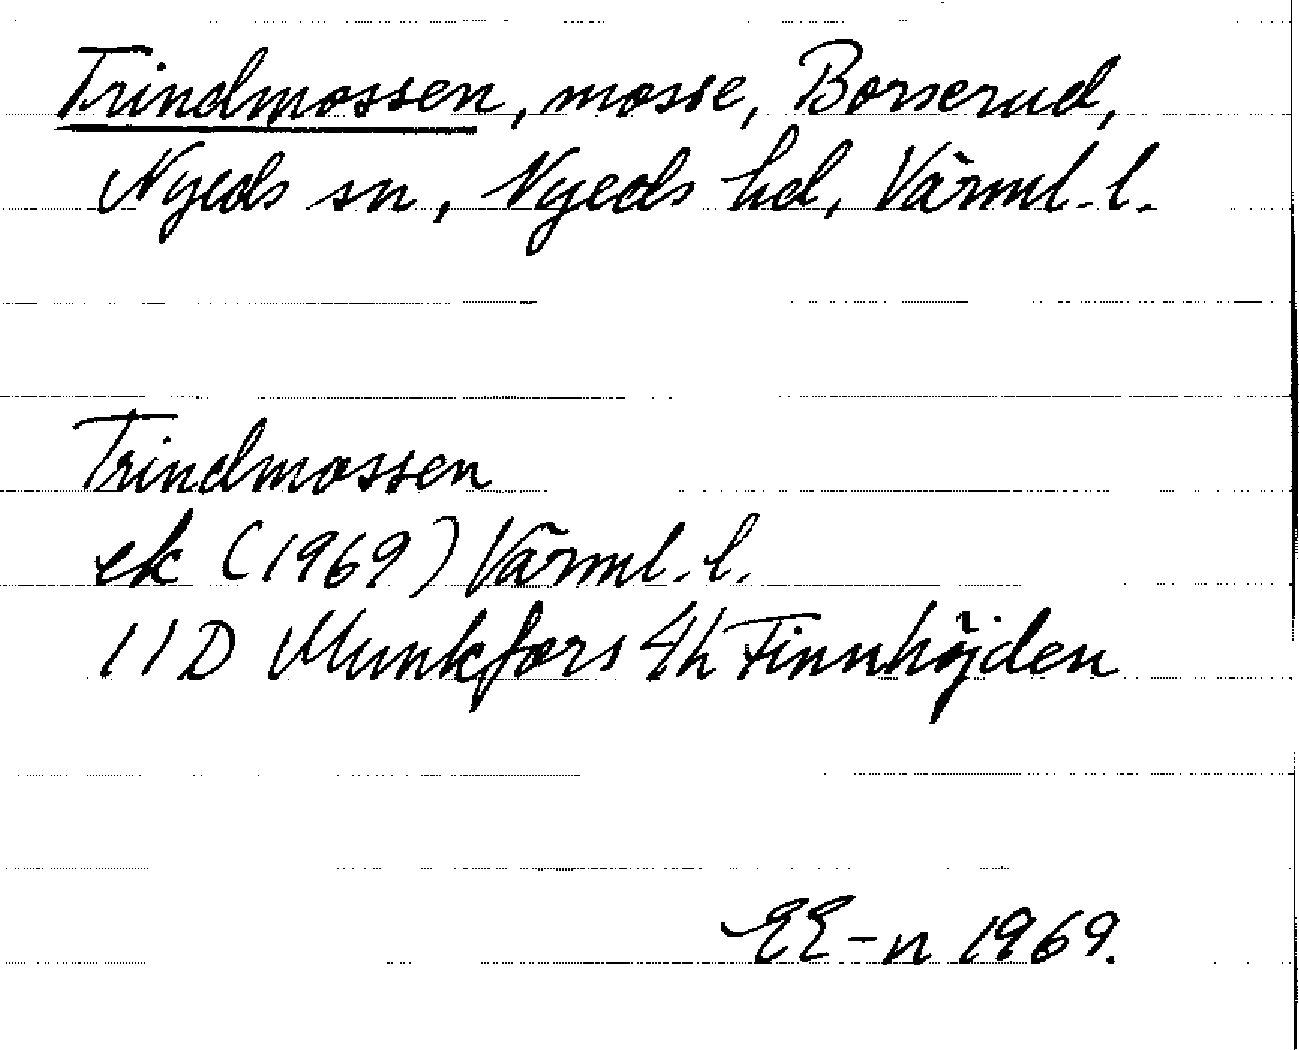 Trindmossen, mosse, Borserud,
Nyeds sn, Nyeds hd, Värml. l.
Trindmossen
ek (1969) Värml. l.
11D Munkfors 4h Finnhöjden
EE-n 1969.